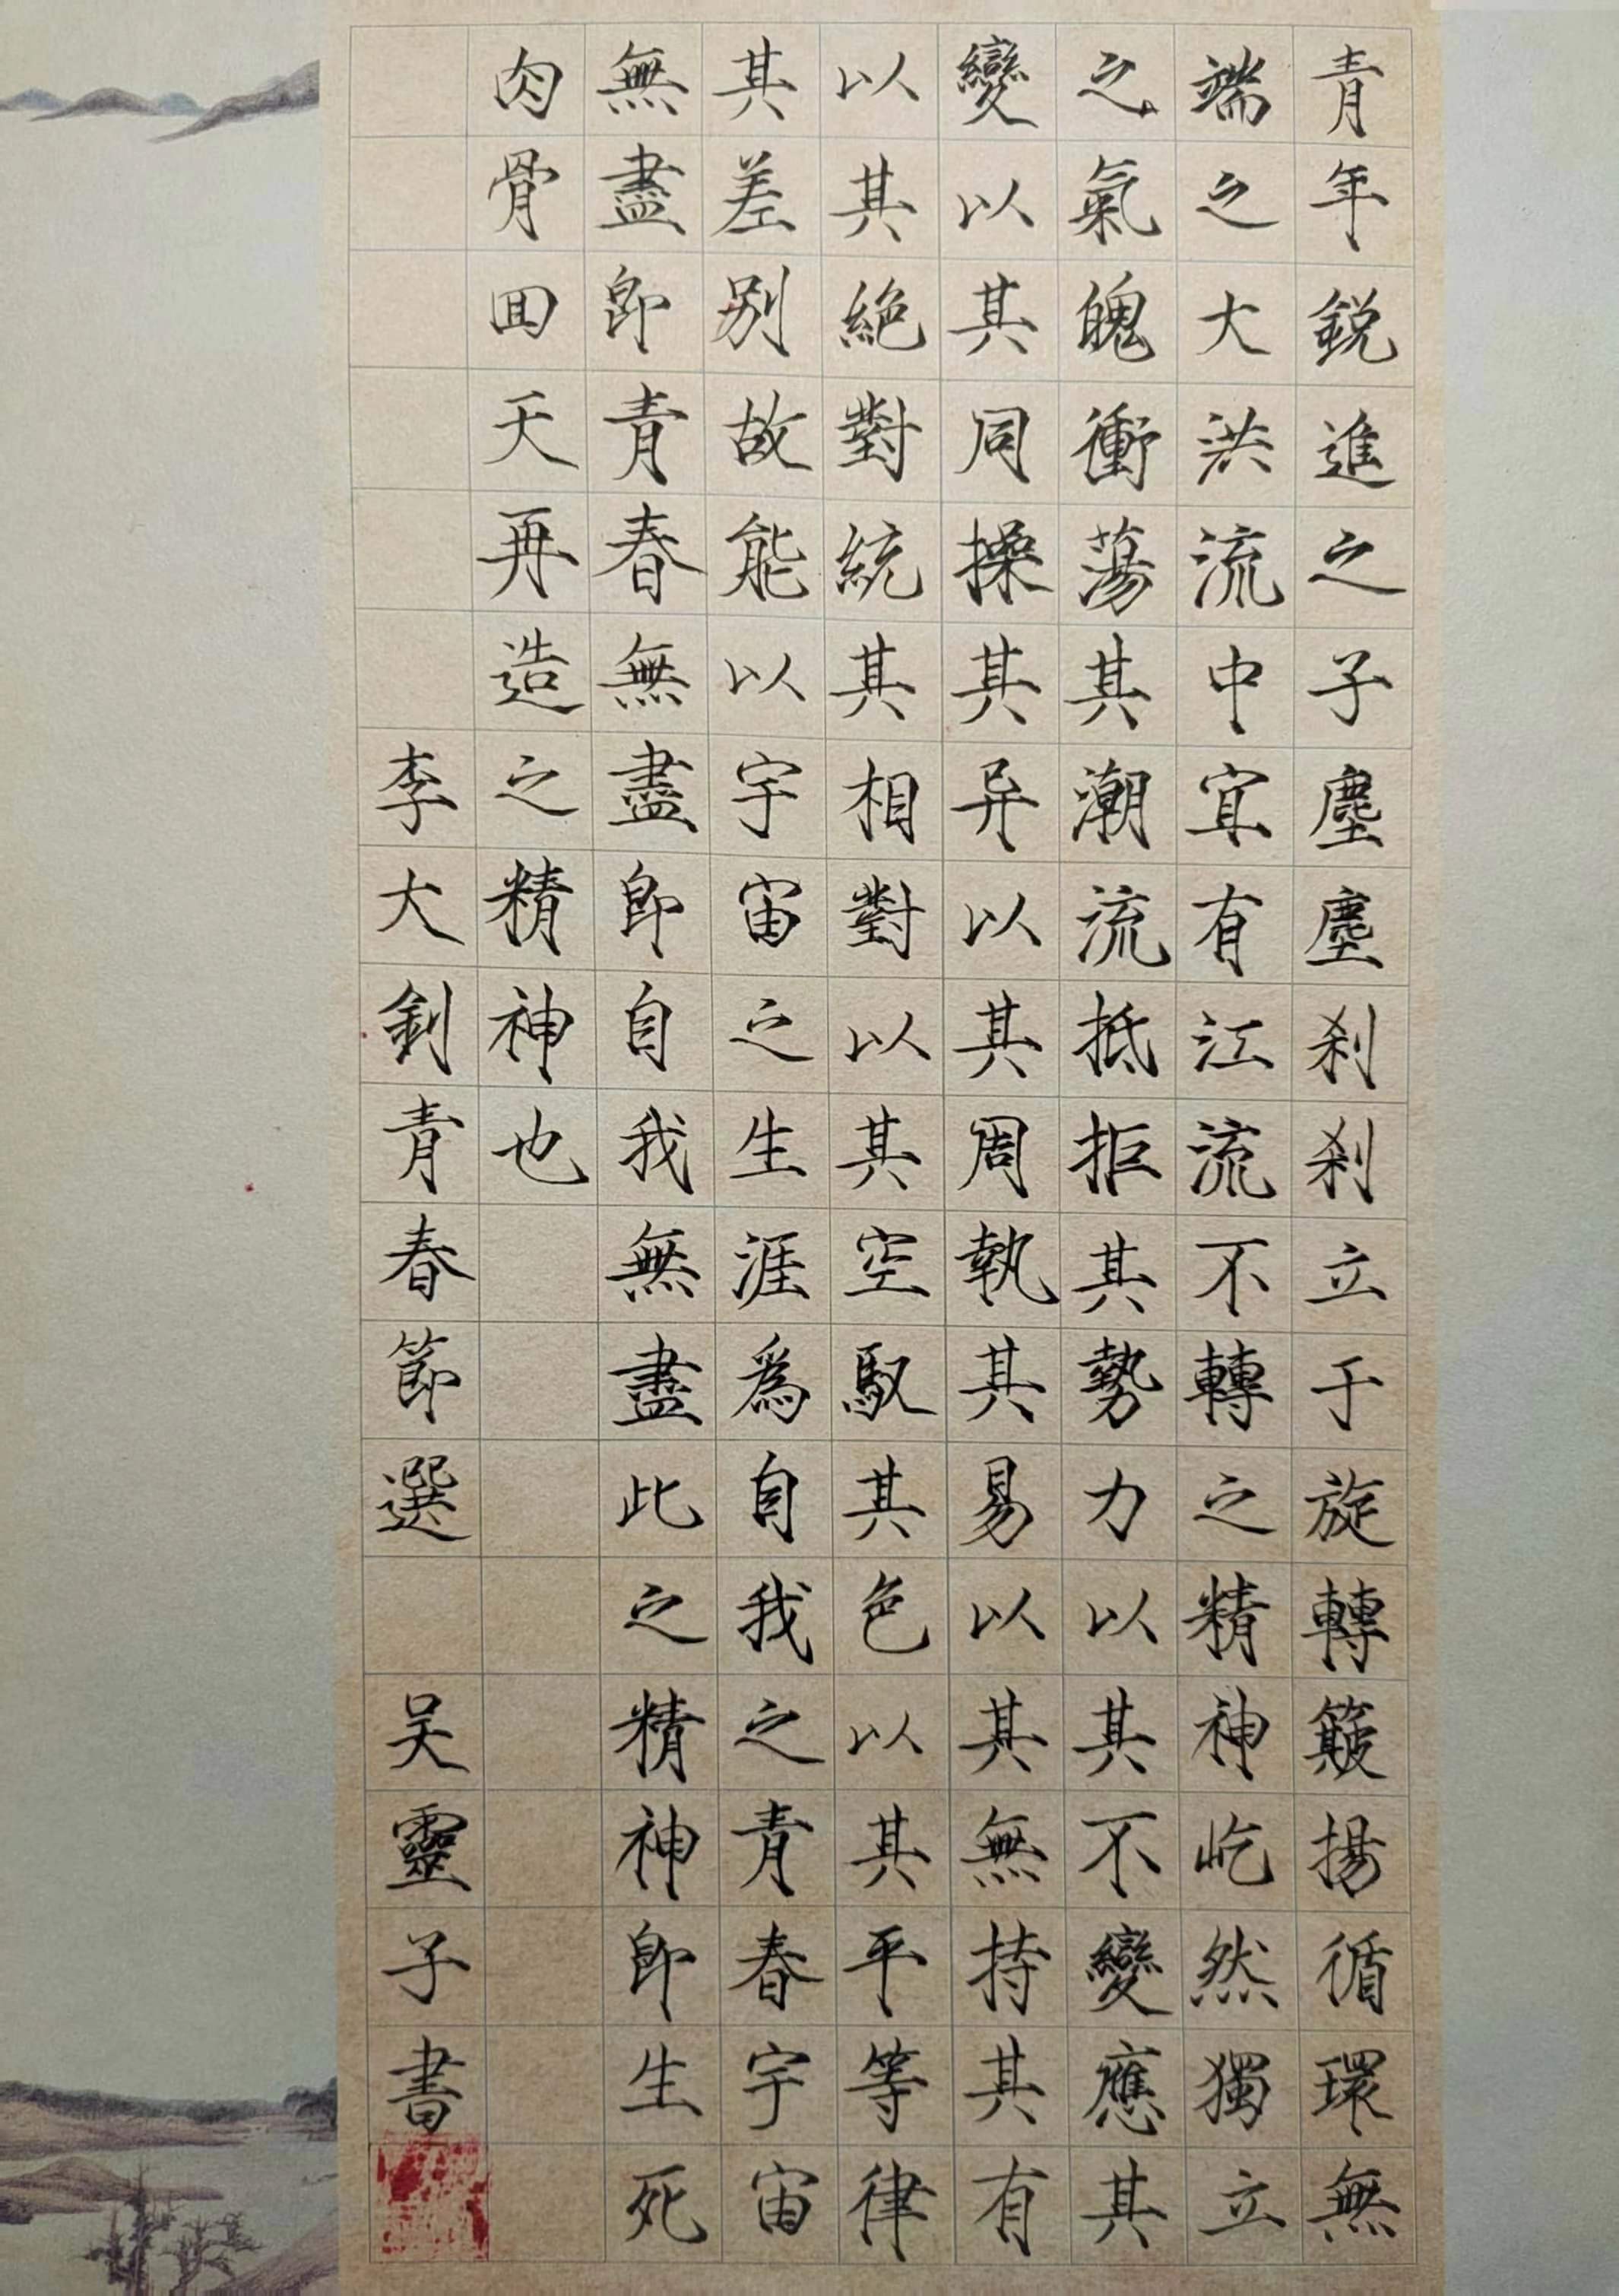 青年鋭進之子塵塵刹刹立于旋轉簸揚循環無
端之大洪流中宜有江流不轉之精神屹然獨立
之氣魄衝蕩其潮流抵拒其勢力以其不變應其
變以其同操其异以其周執其易以其無持其有
以其絶對統其相對以其空馭其色以其平等律
其差别故能以宇宙之生涯爲自我之青春宇宙
無盡即青春無盡即自我無盡此之精神即生死
肉骨回天再造之精神也
李大釗青春節選 吴靈子書